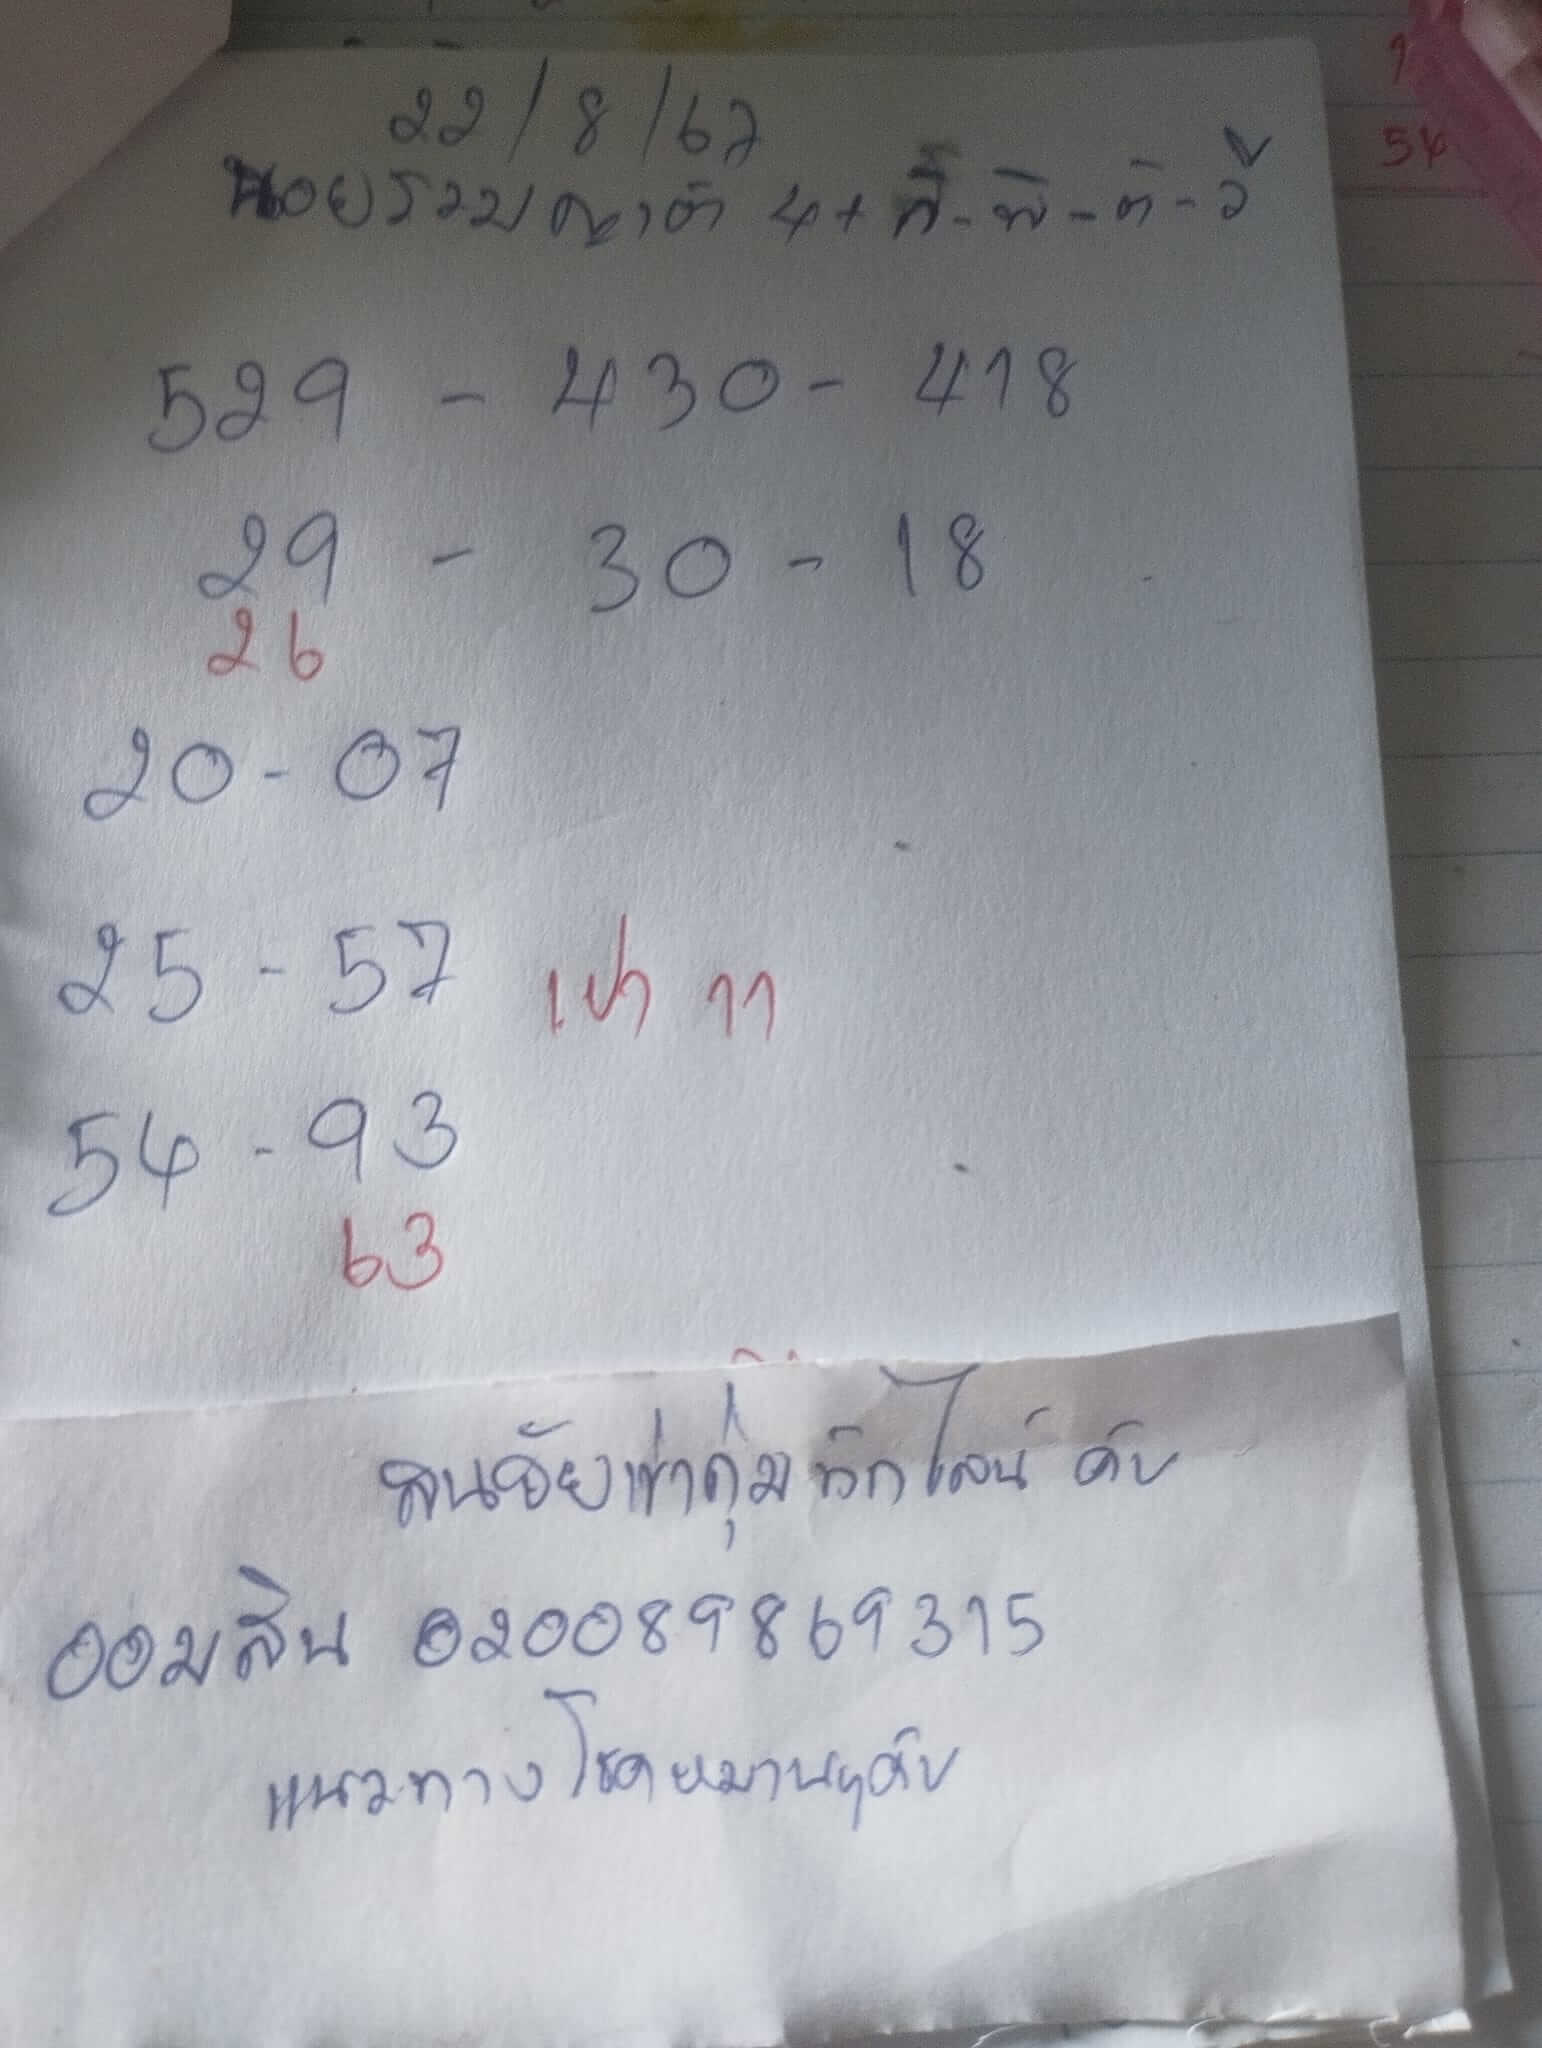 22/8/67
หอยรวมญาติ 4+
529 - 430 - 418
29 - 30 - 18
26
20 - 07
25 - 57 เปา 11
54 - 93
63
สนจัยเข่ากุ่มทักไลน์ คับ
ออมสิน 020089869315
แนวทางโชคหมานๆคับ
54